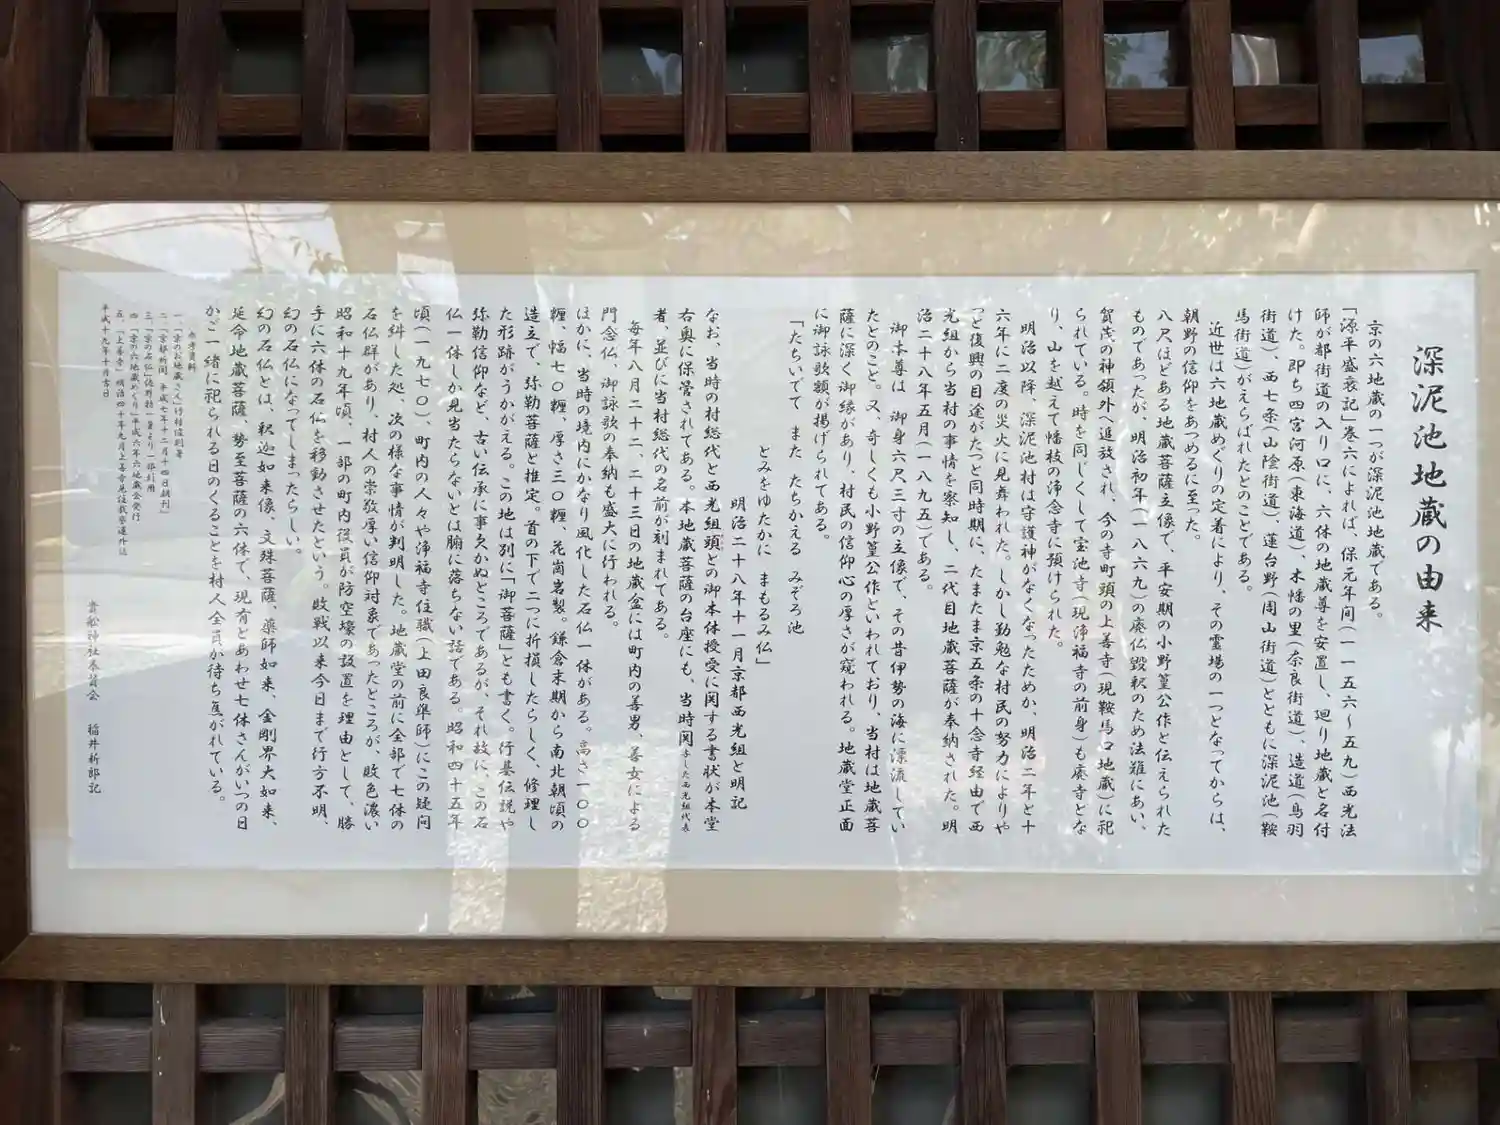 深泥池地蔵の由来
京の六地蔵の一つが深泥池地蔵である。
「源平盛衰記」巻六によれば、保元年間(一一五六～五九)西光法
師が都街道の入り口に、六体の地蔵尊を安置し、廻り地蔵と名付
けた。即ち四宮河原(東海道)、木幡の里(奈良街道)、造道(鳥羽
街道)、西七条(山陰街道)、蓮台野(周山街道)とともに深泥池(鞍
馬街道)がえらばれたとのことである。
近世は六地蔵めぐりの定着により、その霊場の一つとなってからは、
朝野の信仰をあつめるに至った。
八尺ほどある地蔵菩薩立像で、平安期の小野篁公作と伝えられた
ものであったが、明治初年(一八六九)の廃仏毀釈のため法難にあい、
賀茂の神領外へ追放され、今の寺町頭の上善寺(現鞍馬口地蔵)に祀
られている。時を同じくして宝池寺(現浄福寺の前身)も廃寺とな
り、山を越えて幡枝の浄念寺に預けられた。
明治以降、深泥池村は守護神がなくなったためか、明治二年と十
六年に二度の災火に見舞われた。しかし勤勉な村民の努力によりや
っと復興の目途がたつと同時期に、たまたま京五条の十念寺経由で西
光組から当村の事情を察知し、二代目地蔵菩薩が奉納された。明
治二十八年五月(一八九五)である。
御本尊は 御身六尺三寸の立像で、その昔伊勢の海に漂流してい
たとのこと。又、奇しくも小野篁公作といわれており、当村は地蔵菩
薩に深く御縁があり、村民の信仰心の厚さが窺われる。地蔵堂正面
に御詠歌額が揚げられてある。
「たちいでて また たちかえる みぞろ池
とみをゆたかに まもるみ仏」
明治二十八年十一月京都西光組と明記
なお、当時の村総代と西光組頭との御本体授受に関する書状が本堂
右奥に保管されてある。本地蔵菩薩の台座にも、当時関与した西光組代表
者、並びに当村総代の名前が刻まれてある。
毎年八月二十二、二十三日の地蔵盆には町内の善男、善女による
門念仏、御詠歌の奉納も盛大に行われる。
ほかに、当時の境内にかなり風化した石仏一体がある。高さ一〇〇
糎、幅七〇糎、厚さ三〇糎、花崗岩製。鎌倉末期から南北朝頃の
造立で、弥勒菩薩と推定。首の下で二つに折損したらしく、修理し
た形跡がうかがえる。この地は別に「御菩薩」とも書く。行基伝説や
弥勒信仰など、古い伝承に事欠かぬところであるが、それ故に、この石
仏一体しか見当たらないとは腑に落ちない話である。昭和四十五年
頃(一九七〇)、町内の人々や浄福寺住職(上田良準師)にこの疑問
を糾した処、次の様な事情が判明した。地蔵堂の前に全部で七体の
石仏群があり、村人の崇敬厚い信仰対象であったところが、敗色濃い
昭和十九年頃、一部の町内役員が防空壕の設置を理由として、勝
手に六体の石仏を移動させたという。敗戦以来今日まで行方不明、
幻の石仏になってしまったらしい。
幻の石仏とは、釈迦如来像、文殊菩薩、薬師如来、金剛界大如来、
延命地蔵菩薩、勢至菩薩の六体で、現有とあわせ七体さんがいつの日
かご一緒に祀られる日のくることを村人全員が待ち焦がれている。
参考資料
一、「京のお地蔵さん」竹村俊則著
二、「京都新聞 平成七年十二月十四日朝刊」
三、「京の石仏」佐野精一著より一部引用
四、「京の六地蔵めぐり」平成六年六地蔵会発行
五、「上善寺」明治四十年九月上善寺
平成十九年十月吉日
貴舩神社奉賛会 稲井新郎記